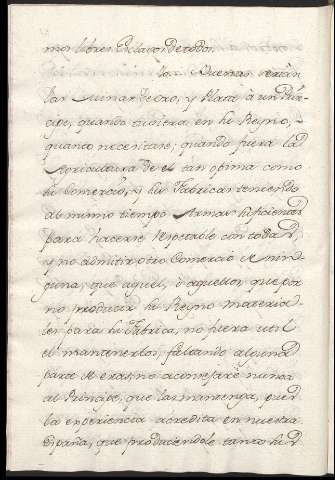 mos libres Esclavos de todos.
las Buenas serian
las Minas de oro, y Plata à un Prin-
cipe, quando tubiera en su Reyno,
quanto necesitare; quando fuera la
Agricultura de el tan opima como
su Comercio, y sus Fabricas teniendo
al mismo tiempo Armas suficientes
para hacerse respetable con todas,
y no admitir otro Comercio de nin-
guno, que aquel, ò aquellos, que por
no producir su Reyno materia
les para su Fabrica, no fuera util
el mantenerlos, faltando alguna
parte de eras, no aconsejaré nunca
al Principe, que las mantenga, pues
la experiencia acredita en nuestra
España, que produciendole tanto sus